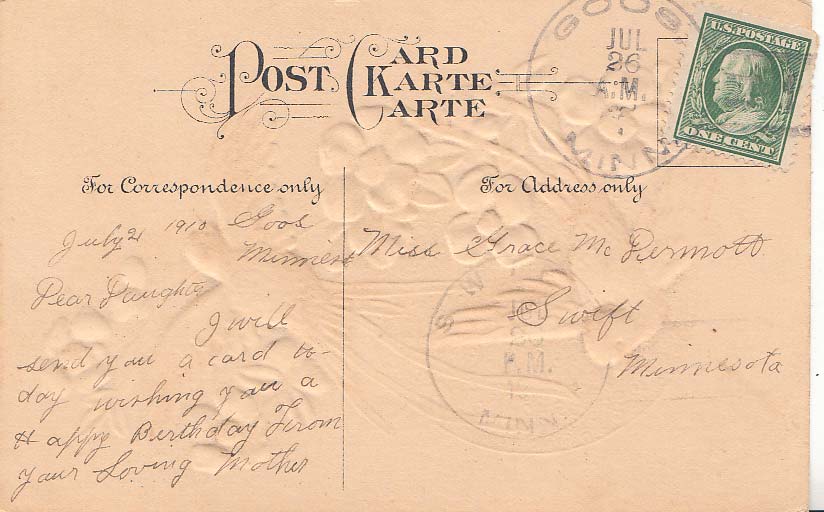 POST CARD
KARTE
CARTE
GOOS
JUL
26
A.M.
MINN
U.S. POSTAGE
ONE CENT
For Correspondence only
For Address only
July 21 1910 Goos
Minnesota
Dear Daughter
I will
send you a card to-
day wishing you a
Happy Birthday From
your Loving Mother
Miss Grace McDermott
Swift
Minnesota
SW
P.M.
MINN.